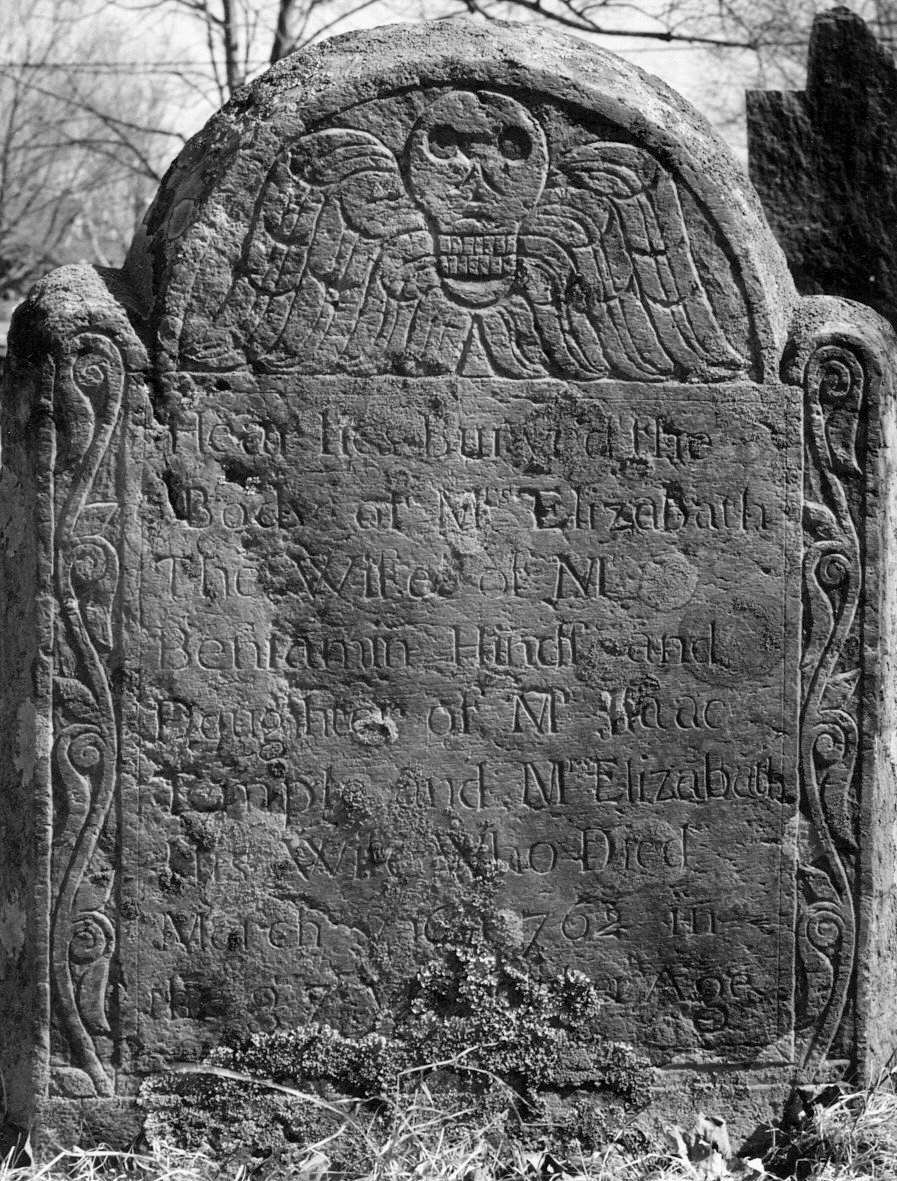 Hear lies Buryd the
Body of Mrs Elizabath
The Wife of Mr
Beniamin Hinds and
Daughter of Mr Isaac
Temple and Mrs Elizabath
his Wife Who Died
March 762 in
the 3 Age